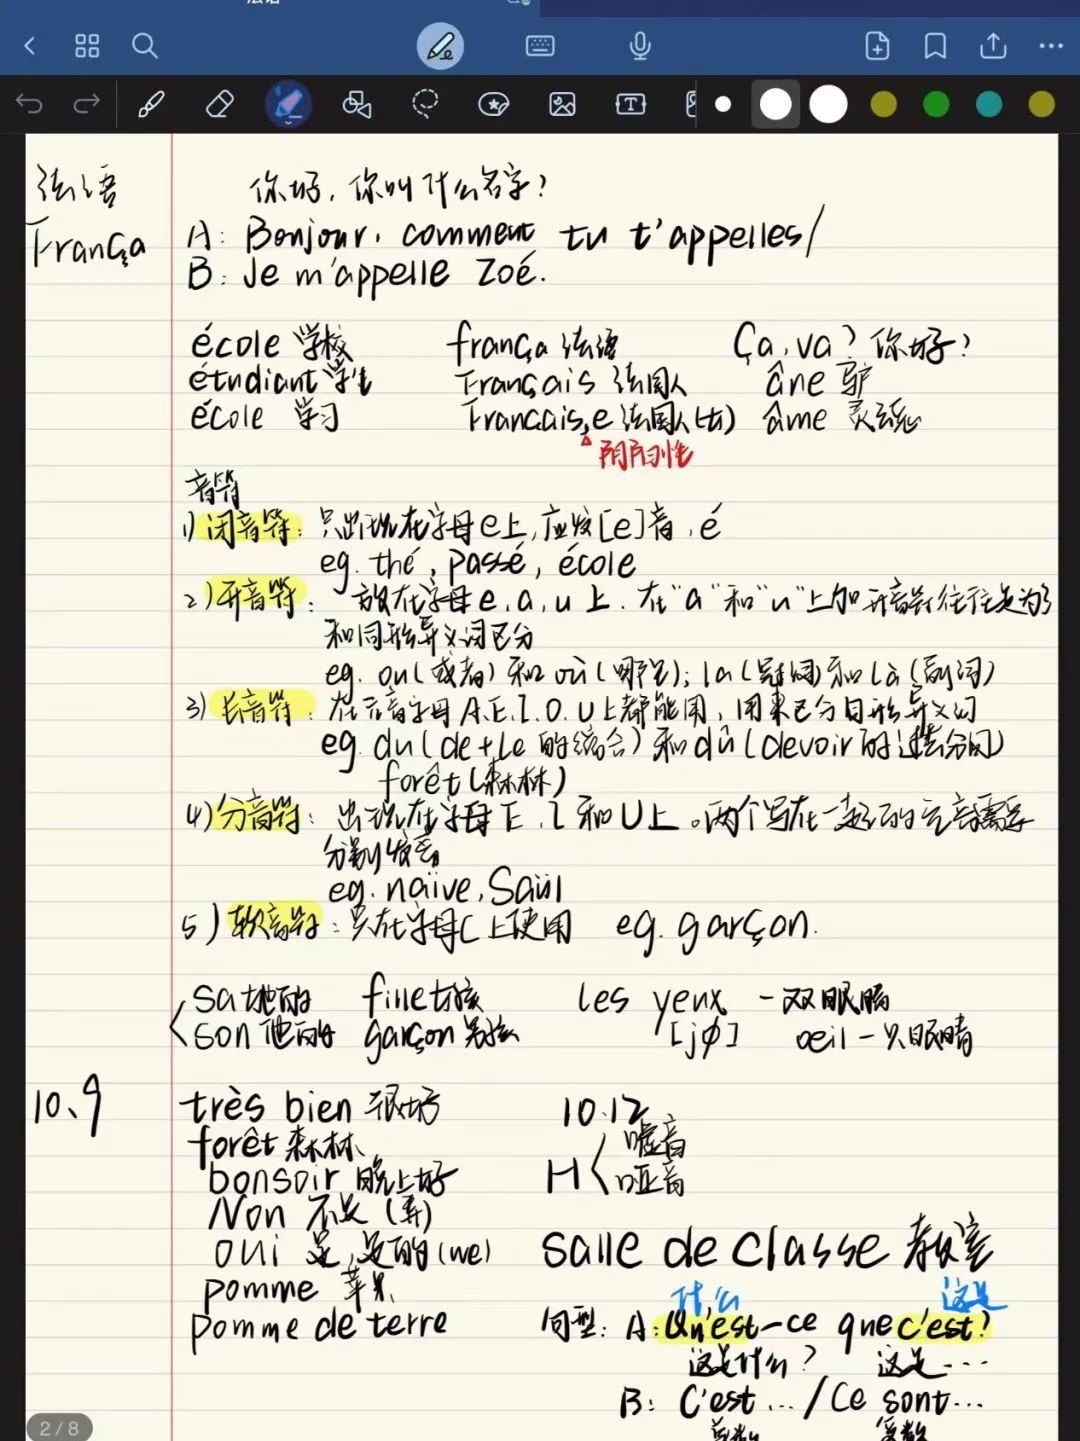 法语
França
你好，你叫什么名字？
A: Bonjour, comment tu t'appelles/
B: Je m'appelle Zoé.
école 学校 frança 法语 Ça, va? 你好?
étudiant 学生 Français 法国人 âne 驴
école 学习 Francais,e 法国人(女) âme 灵魂
阴阳性
音符
1) 闭音符：只出现在字母e上，应发[e]音，é
eg. thé, passé, école
2) 开音符：放在字母e,a,u上. 在"a"和"u"上加开音符往往是为了
和同形异义词区分
eg. ou(或者)和où(哪里); la(冠词)和là(副词)
3) 长音符：在元音字母A.E.I.O.U上都能用，用来区分同形异义词
eg. du(de+le的缩合)和dû(devoir的过去分词)
forêt(森林)
4) 分音符：出现在字母E,I和U上。两个写在一起的元音需要
分别发音
eg. naïve, Saül
5) 软音符：只在字母C上使用 eg. garçon.
sa 她的 fille 女孩 les yeux 一双眼睛
son 他的 garçon 男孩 [jφ] oeil 一只眼睛
10、9
très bien 很好 10.12
forêt 森林 H 嘘音
bonsoir 晚上好 哑音
Non 不是 (弄)
oui 是,是的(we) salle de classe 教室
pomme 苹果 什么 这是
pomme de terre 句型: A: Qu'est-ce que c'est?
这是什么? 这是...
B: C'est .../Ce sont...
复数
2/8